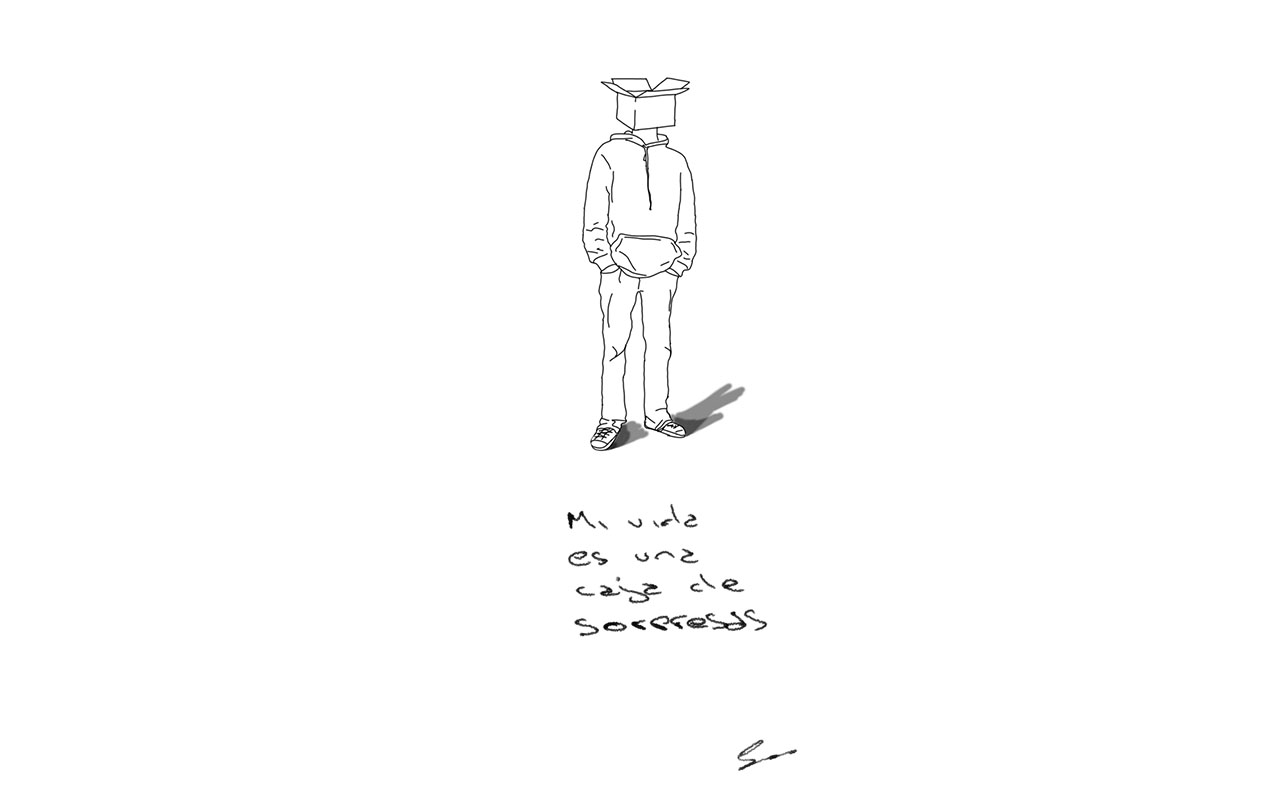 Mi vida
es una
caja de
sorpresas